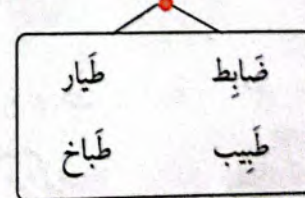 ضَابِط طَيار
طَبِيب طَباخ